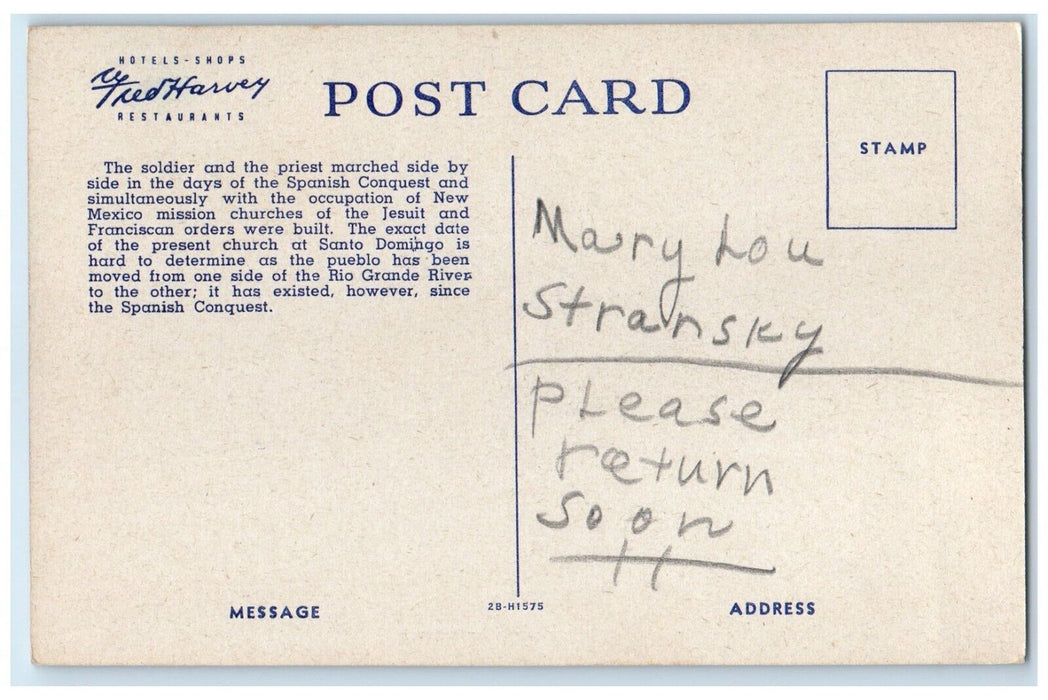 HOTELS-SHOPS
Fred Harvey
RESTAURANTS
POST CARD
STAMP
The soldier and the priest marched side by
side in the days of the Spanish Conquest and
simultaneously with the occupation of New
Mexico mission churches of the Jesuit and
Franciscan orders were built. The exact date
of the present church at Santo Domingo is
hard to determine as the pueblo has been
moved from one side of the Rio Grande River
to the other; it has existed, however, since
the Spanish Conquest.
Mary Lou
Stransky
please
return
soon
MESSAGE
2B-H1575
ADDRESS